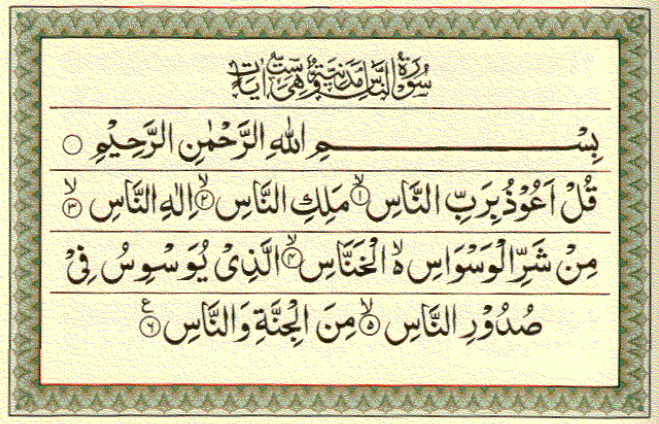 سُوْرَةُ النَّاسِ مَدَنِيَّةٌ وَّهِيَ سِتُّ اٰيَاتٍ
بِسْمِ اللهِ الرَّحْمٰنِ الرَّحِيْمِ ○
قُلْ اَعُوْذُ بِرَبِّ النَّاسِ ۙ﴿۱﴾ مَلِكِ النَّاسِ ۙ﴿۲﴾ اِلٰهِ النَّاسِ ۙ﴿۳﴾
مِنْ شَرِّ الْوَسْوَاسِ ۵ۙ الْخَنَّاسِ ۙ﴿۴﴾ الَّذِىْ يُوَسْوِسُ فِىْ
صُدُوْرِ النَّاسِ ۙ﴿۵﴾ مِنَ الْجِنَّةِ وَالنَّاسِ ﴿۶﴾ ع